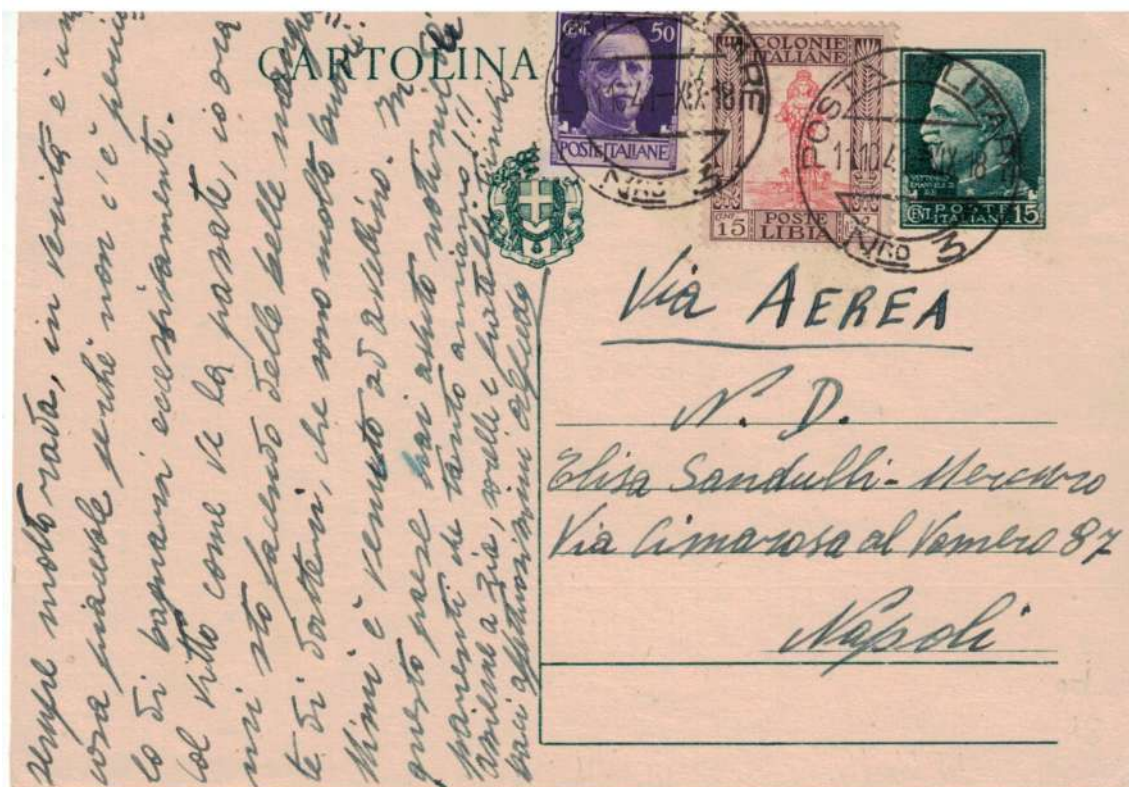 CARTOLINA
CENT. 50
POSTE ITALIANE
COLONIE
ITALIANE
CENT 15
POSTE
LIBIA
VITTORIO
EMANUELE III
RE
CENT. 15
POSTE
ITALIANE
POSTA MILITARE
41-XIX-18
Nro 3
POSTA MILITARE
11.10.4 XIX 18
Nro 3
Via AEREA
N. D.
Elisa Sandulli-Mercuro
Via Cimarosa al Vomero 87
Napoli
sempre molto rada, in verità è una
cosa piacevole perché non c'è
lo di bagnarsi eccessivamente.
Col vitto come ve la passate, io ora
mi sto facendo delle belle
te di datteri, che sono molto buoni.
Mimì è venuto ad Avellino. In
questo paese hai avuto notizie
parenti che tanto amiamo!!!
zia, sorelle e fratelli
baci affettuosissimi Alfredo